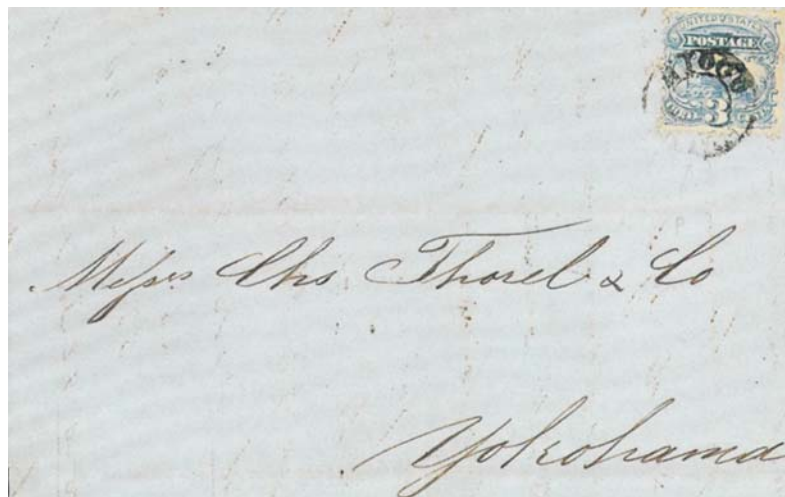 UNITED STATES
POSTAGE
HIOGO
3
Messrs Chs Thorel & Co
Yokohama